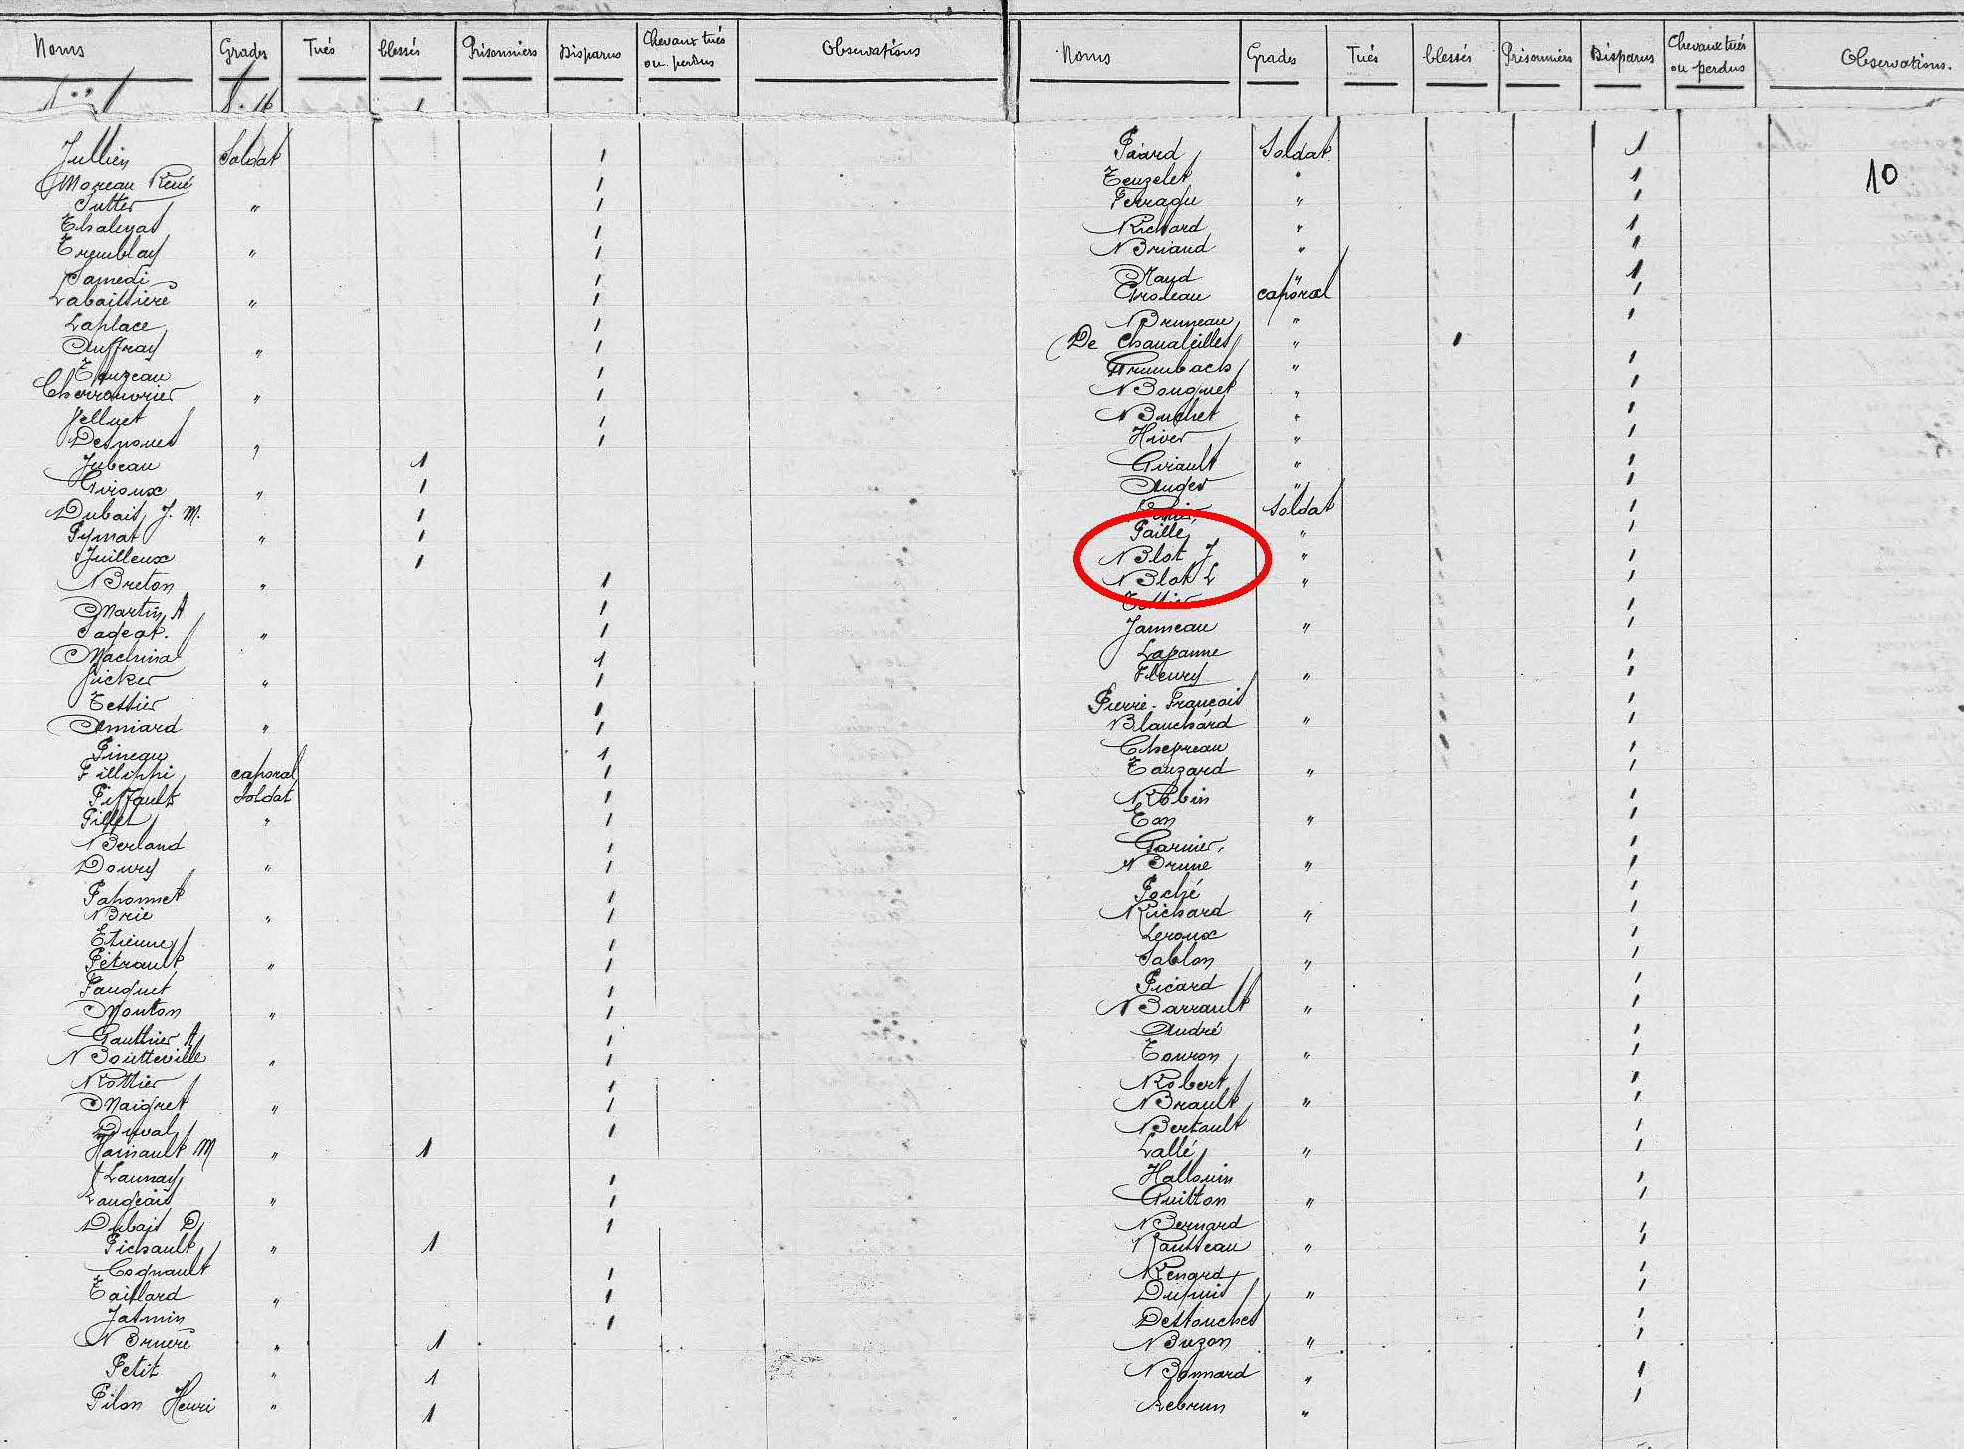 Noms Grades Tués blessés Prisonniers Disparus Chevaux tués ou perdus Observations
Jullien Soldat 1
Moreau René 1
Sutter " 1
Thalenas 1
Tremblay " 1
Samedi 1
Labaissière " 1
Laplace 1
Auffray " 1
Touzeau 1
Cherrouvrier " 1
Pelluet 1
Desnoues " 1
Jubeau 1
Giroux " 1
Dubois J. M. 1
Pymat " 1
Juilleux 1
Breton " 1
Martin A 1
Sageot. " 1
Machina 1
Jucker " 1
Tessier 1
Amiard " 1
Pineau 1
Fillippi caporal 1
Piffault Soldat 1
Pillet " 1
Berland 1
Doury " 1
Pahonnet 1
Brie " 1
Etienne 1
Pétrault " 1
Fauquet 1
Mouton " 1
Gauthier A 1
Boutteville " 1
Rottier 1
Maigret " 1
Duval 1
Harnault M " 1
Launay 1
Langeais " 1
Dubois D 1
Pichault " 1
Cognault 1
Taillard " 1
Jasmin 1
Bruère " 1
Petit " 1
Pilon Henri " 1
Noms Grades Tués blessés Prisonniers Disparus Chevaux tués ou perdus Observations.
Piard Soldat 1 10
Teuzelet " 1
Ferragu " 1
Richard " 1
Briand " 1
Mayd " 1
Groleau caporal 1
Bruneau " 1
De Chanaleilles " 1
Grumbach " 1
Bouquet " 1
Buchet " 1
Hiver " 1
Girault " 1
Auger " 1
Soldat 1
Paille " 1
Blot J " 1
Blot L " 1
Tellier 1
Janneau " 1
Lapanne 1
Fleury " 1
Pierre-François 1
Blanchard " 1
Chepreau 1
Tauzard " 1
Robin 1
Eon " 1
Garnier 1
Brune " 1
Poché 1
Richard " 1
Leroux 1
Sablon " 1
Picard 1
Barrault " 1
André 1
Touron " 1
Robert 1
Brault " 1
Bertault 1
Lallé " 1
Hallouin 1
Guitton " 1
Bernard 1
Rautureau " 1
Renard 1
Dupuis " 1
Destouches 1
Buzon " 1
Bonnard " 1
Lebrun " 1